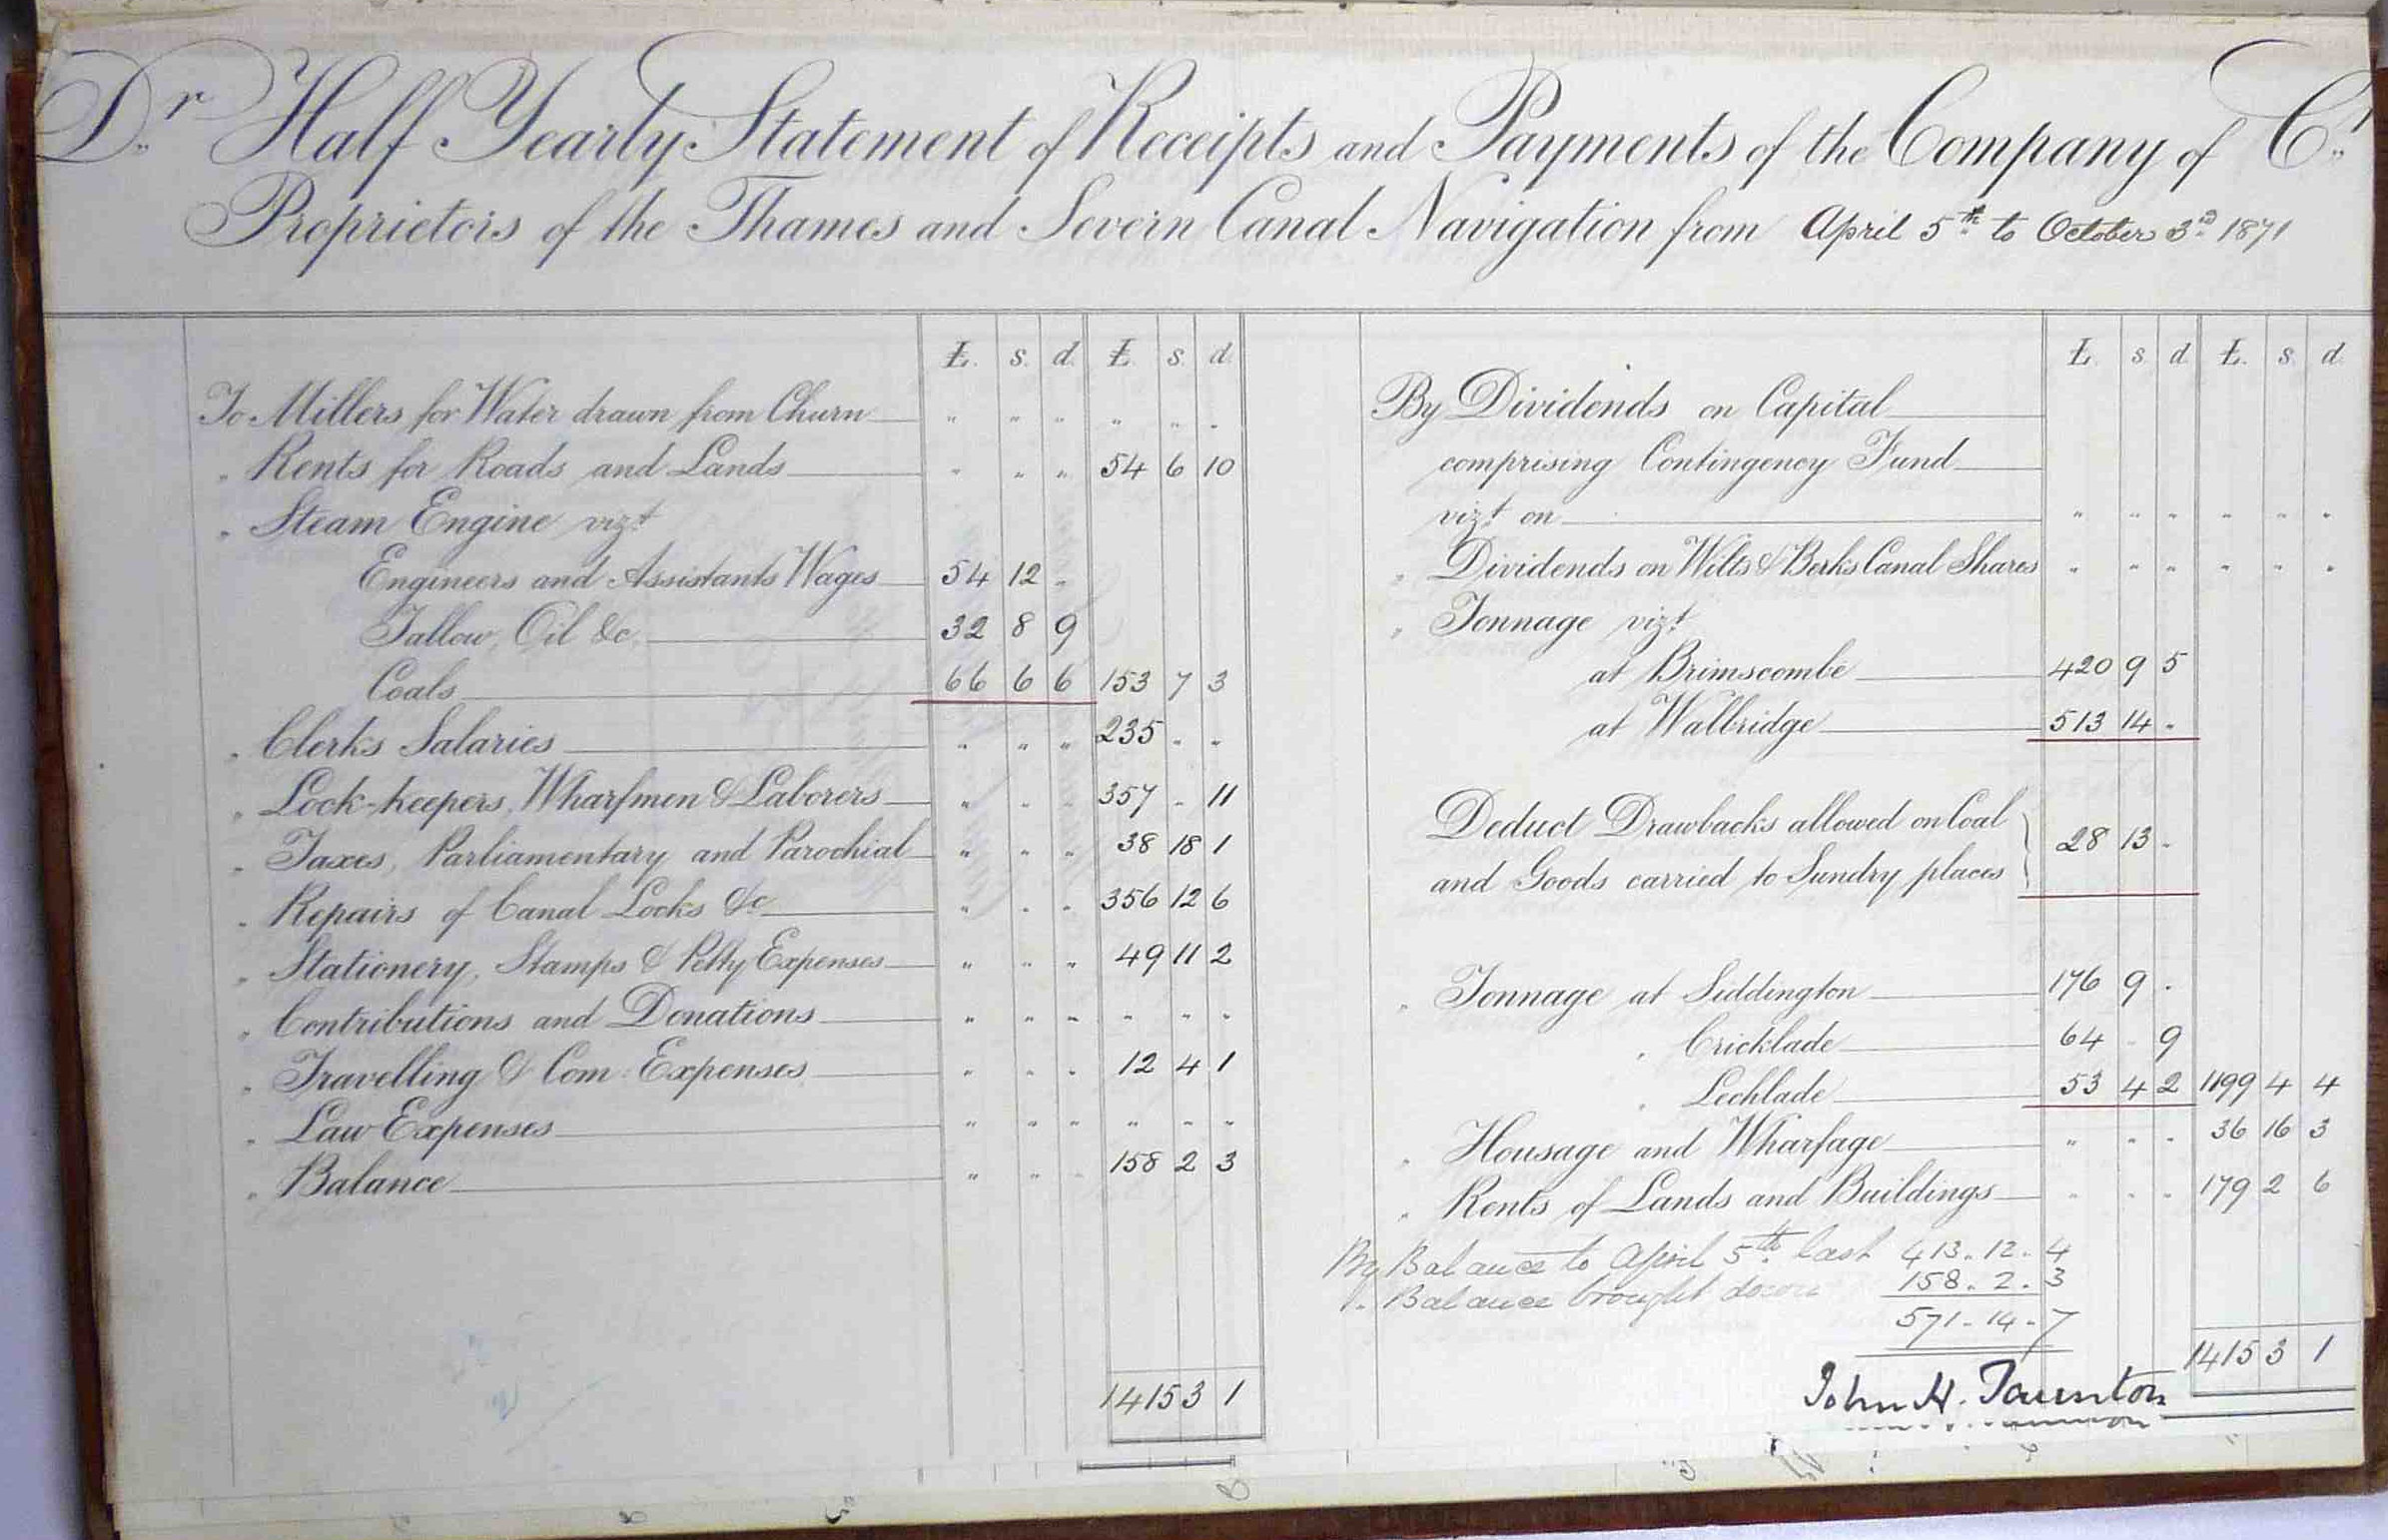 Dr Half Yearly Statement of Receipts and Payments of the Company of Cr
Proprietors of the Thames and Severn Canal Navigation from April 5th to October 3rd 1871
£. s. d. £. s. d.
To Millers for Water drawn from Churn " " " " " "
" Rents for Roads and Lands " " " 54 6 10
" Steam Engine vizt
Engineers and Assistants Wages 54 12 "
Tallow, Oil &c. 32 8 9
Coals 66 6 6 153 7 3
" Clerks Salaries " " " 235 " "
" Lock-keepers, Wharfmen & Laborers " " " 357 " 11
" Taxes, Parliamentary and Parochial " " " 38 18 1
" Repairs of Canal Locks &c " " " 356 12 6
" Stationery, Stamps & Petty Expenses " " " 49 11 2
" Contributions and Donations " " " " " "
" Travelling & Com: Expenses " " " 12 4 1
" Law Expenses " " " " " "
" Balance " " " 158 2 3
1415 3 1
£. s. d. £. s. d.
By Dividends on Capital
comprising Contingency Fund
vizt on " " " " " "
" Dividends on Wilts & Berks Canal Shares " " " " " "
" Tonnage vizt
at Brimscombe 420 9 5
at Wallbridge 513 14 "
Deduct Drawbacks allowed on Coal
and Goods carried to Sundry places } 28 13 "
" Tonnage at Siddington 176 9 "
" Cricklade 64 " 9
" Lechlade 53 4 2 1199 4 4
" Housage and Wharfage " " " 36 16 3
" Rents of Lands and Buildings " " " 179 2 6
By Balance to April 5th last 413. 12. 4
". Balance brought down 158. 2. 3
571. 14. 7
1415 3 1
John H. Taunton